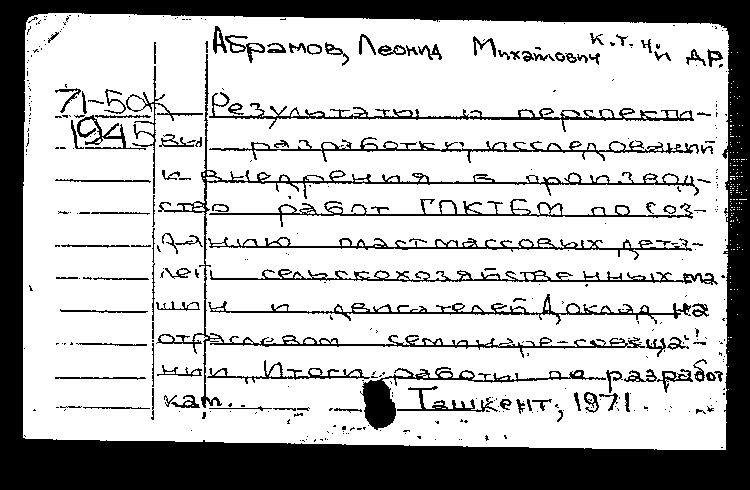 Абрамов, Леонид Михайлович к.т.н. и др.
71-50К Результаты и перспекти-
1945 вы разработки, исследований
и внедрения в производ-
ство работ ГПКТБМ по соз-
данию пластмассовых дета-
лей сельскохозяйственных ма
шин и двигателей. Доклад на
отраслевом семинаре-совеща-
нии „Итоги работы по разработ
кам..
Ташкент, 1971.